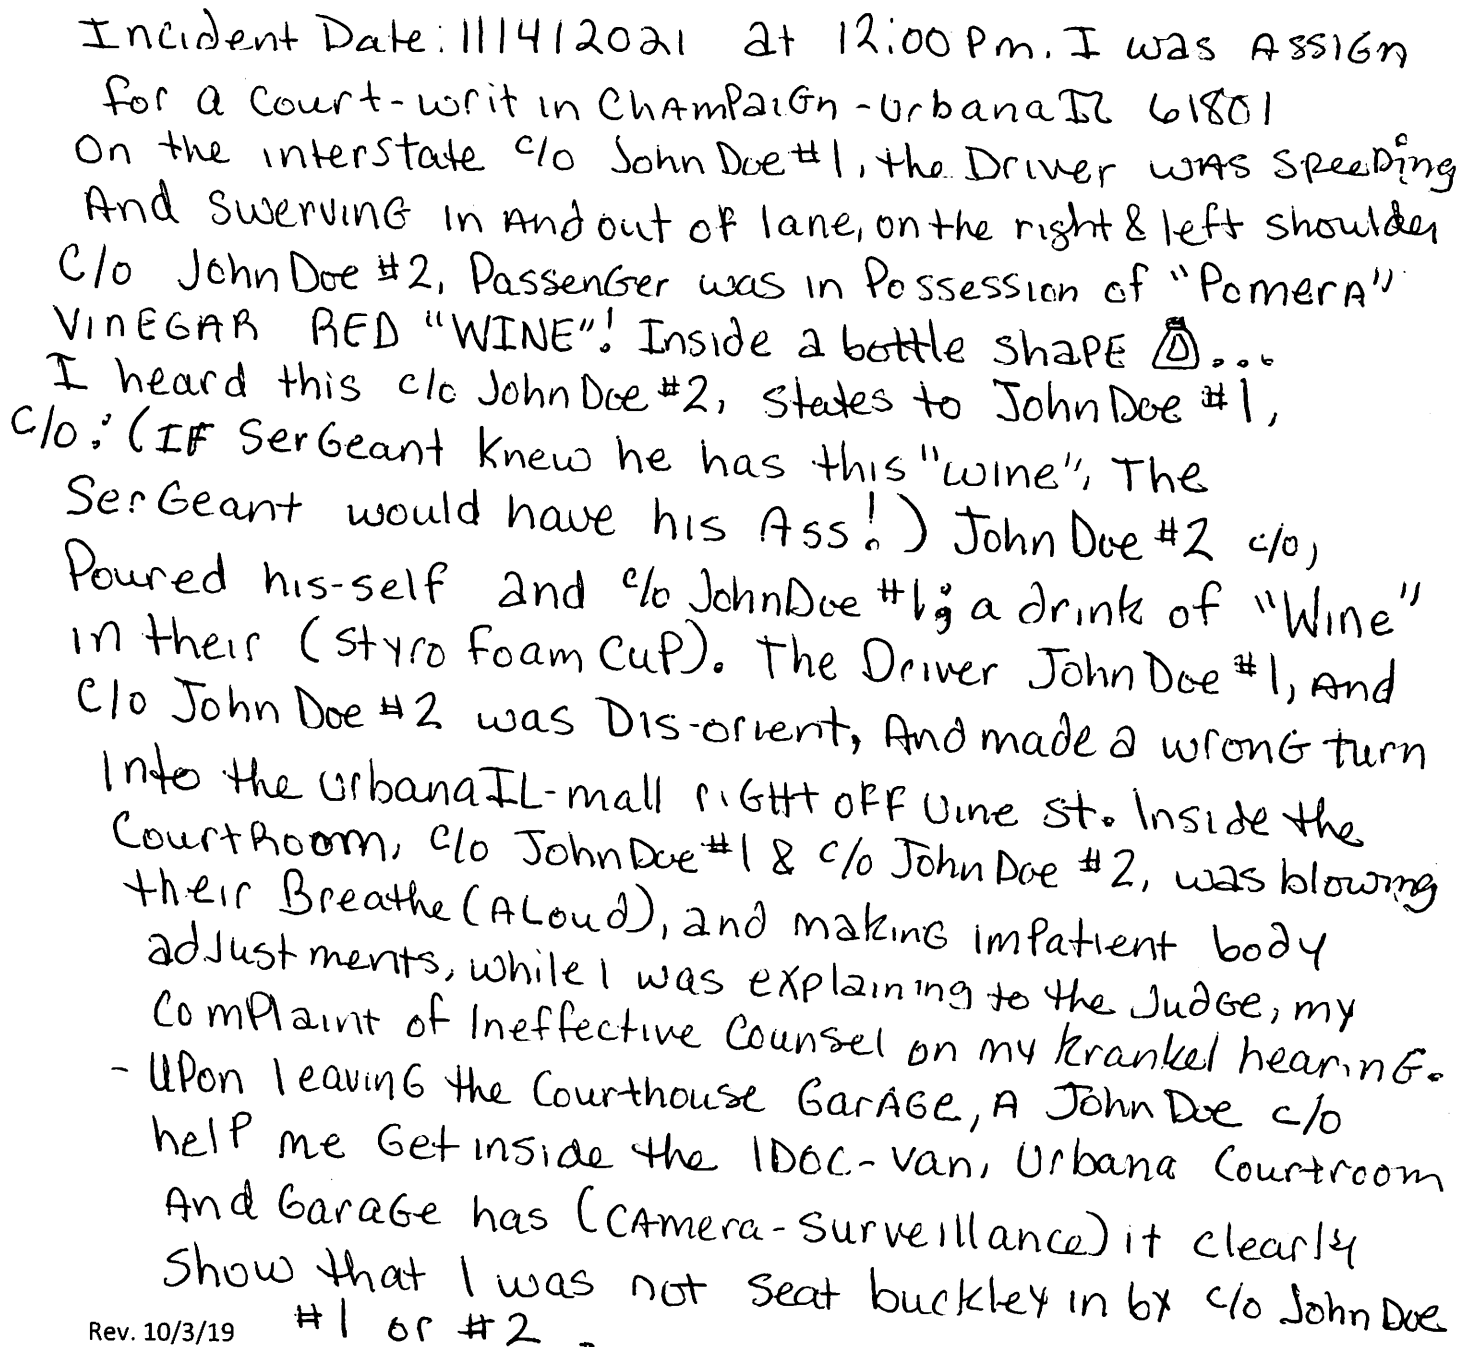 Incident Date: 11/4/2021 at 12:00 Pm. I was Assign
for a Court-writ in Champaign-Urbana IL 61801
On the interstate c/o John Doe #1, the Driver was speeding
And swerving in And out of lane, on the right & left shoulder
C/o John Doe #2, Passenger was in Possession of "Pomera"
VINEGAR RED "WINE"! Inside a bottle shape ...
I heard this c/o John Doe #2, states to John Doe #1,
C/o: (IF Sergeant knew he has this "wine", The
Sergeant would have his Ass!) John Doe #2 c/o,
Poured his-self and c/o John Doe #1; a drink of "Wine"
in their (styro foam cup). The Driver John Doe #1, And
C/o John Doe #2 was Dis-orient, And made a wrong turn
Into the Urbana IL-mall right off Vine St. Inside the
Courtroom, c/o John Doe #1 & c/o John Doe #2, was blowing
their Breathe (Aloud), and making impatient body
adjustments, while I was explaining to the Judge, my
Complaint of Ineffective Counsel on my Krankel hearing.
- Upon leaving the Courthouse Garage, A John Doe c/o
help me Get inside the IDOC-van, Urbana Courtroom
And Garage has (Camera-Surveillance) it clearly
Show that I was not seat buckley in by c/o John Doe
#1 or #2.
Rev. 10/3/19